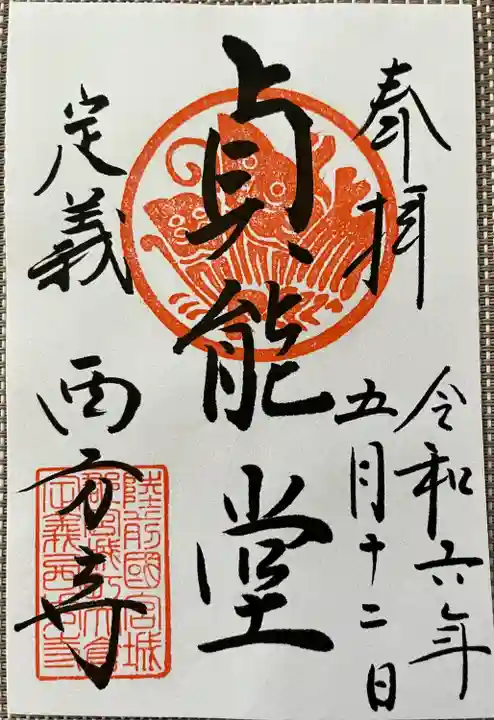 奉拝
令和六年
五月十二日
貞能堂
定義
西方寺
陸前國宮城
定義西方寺